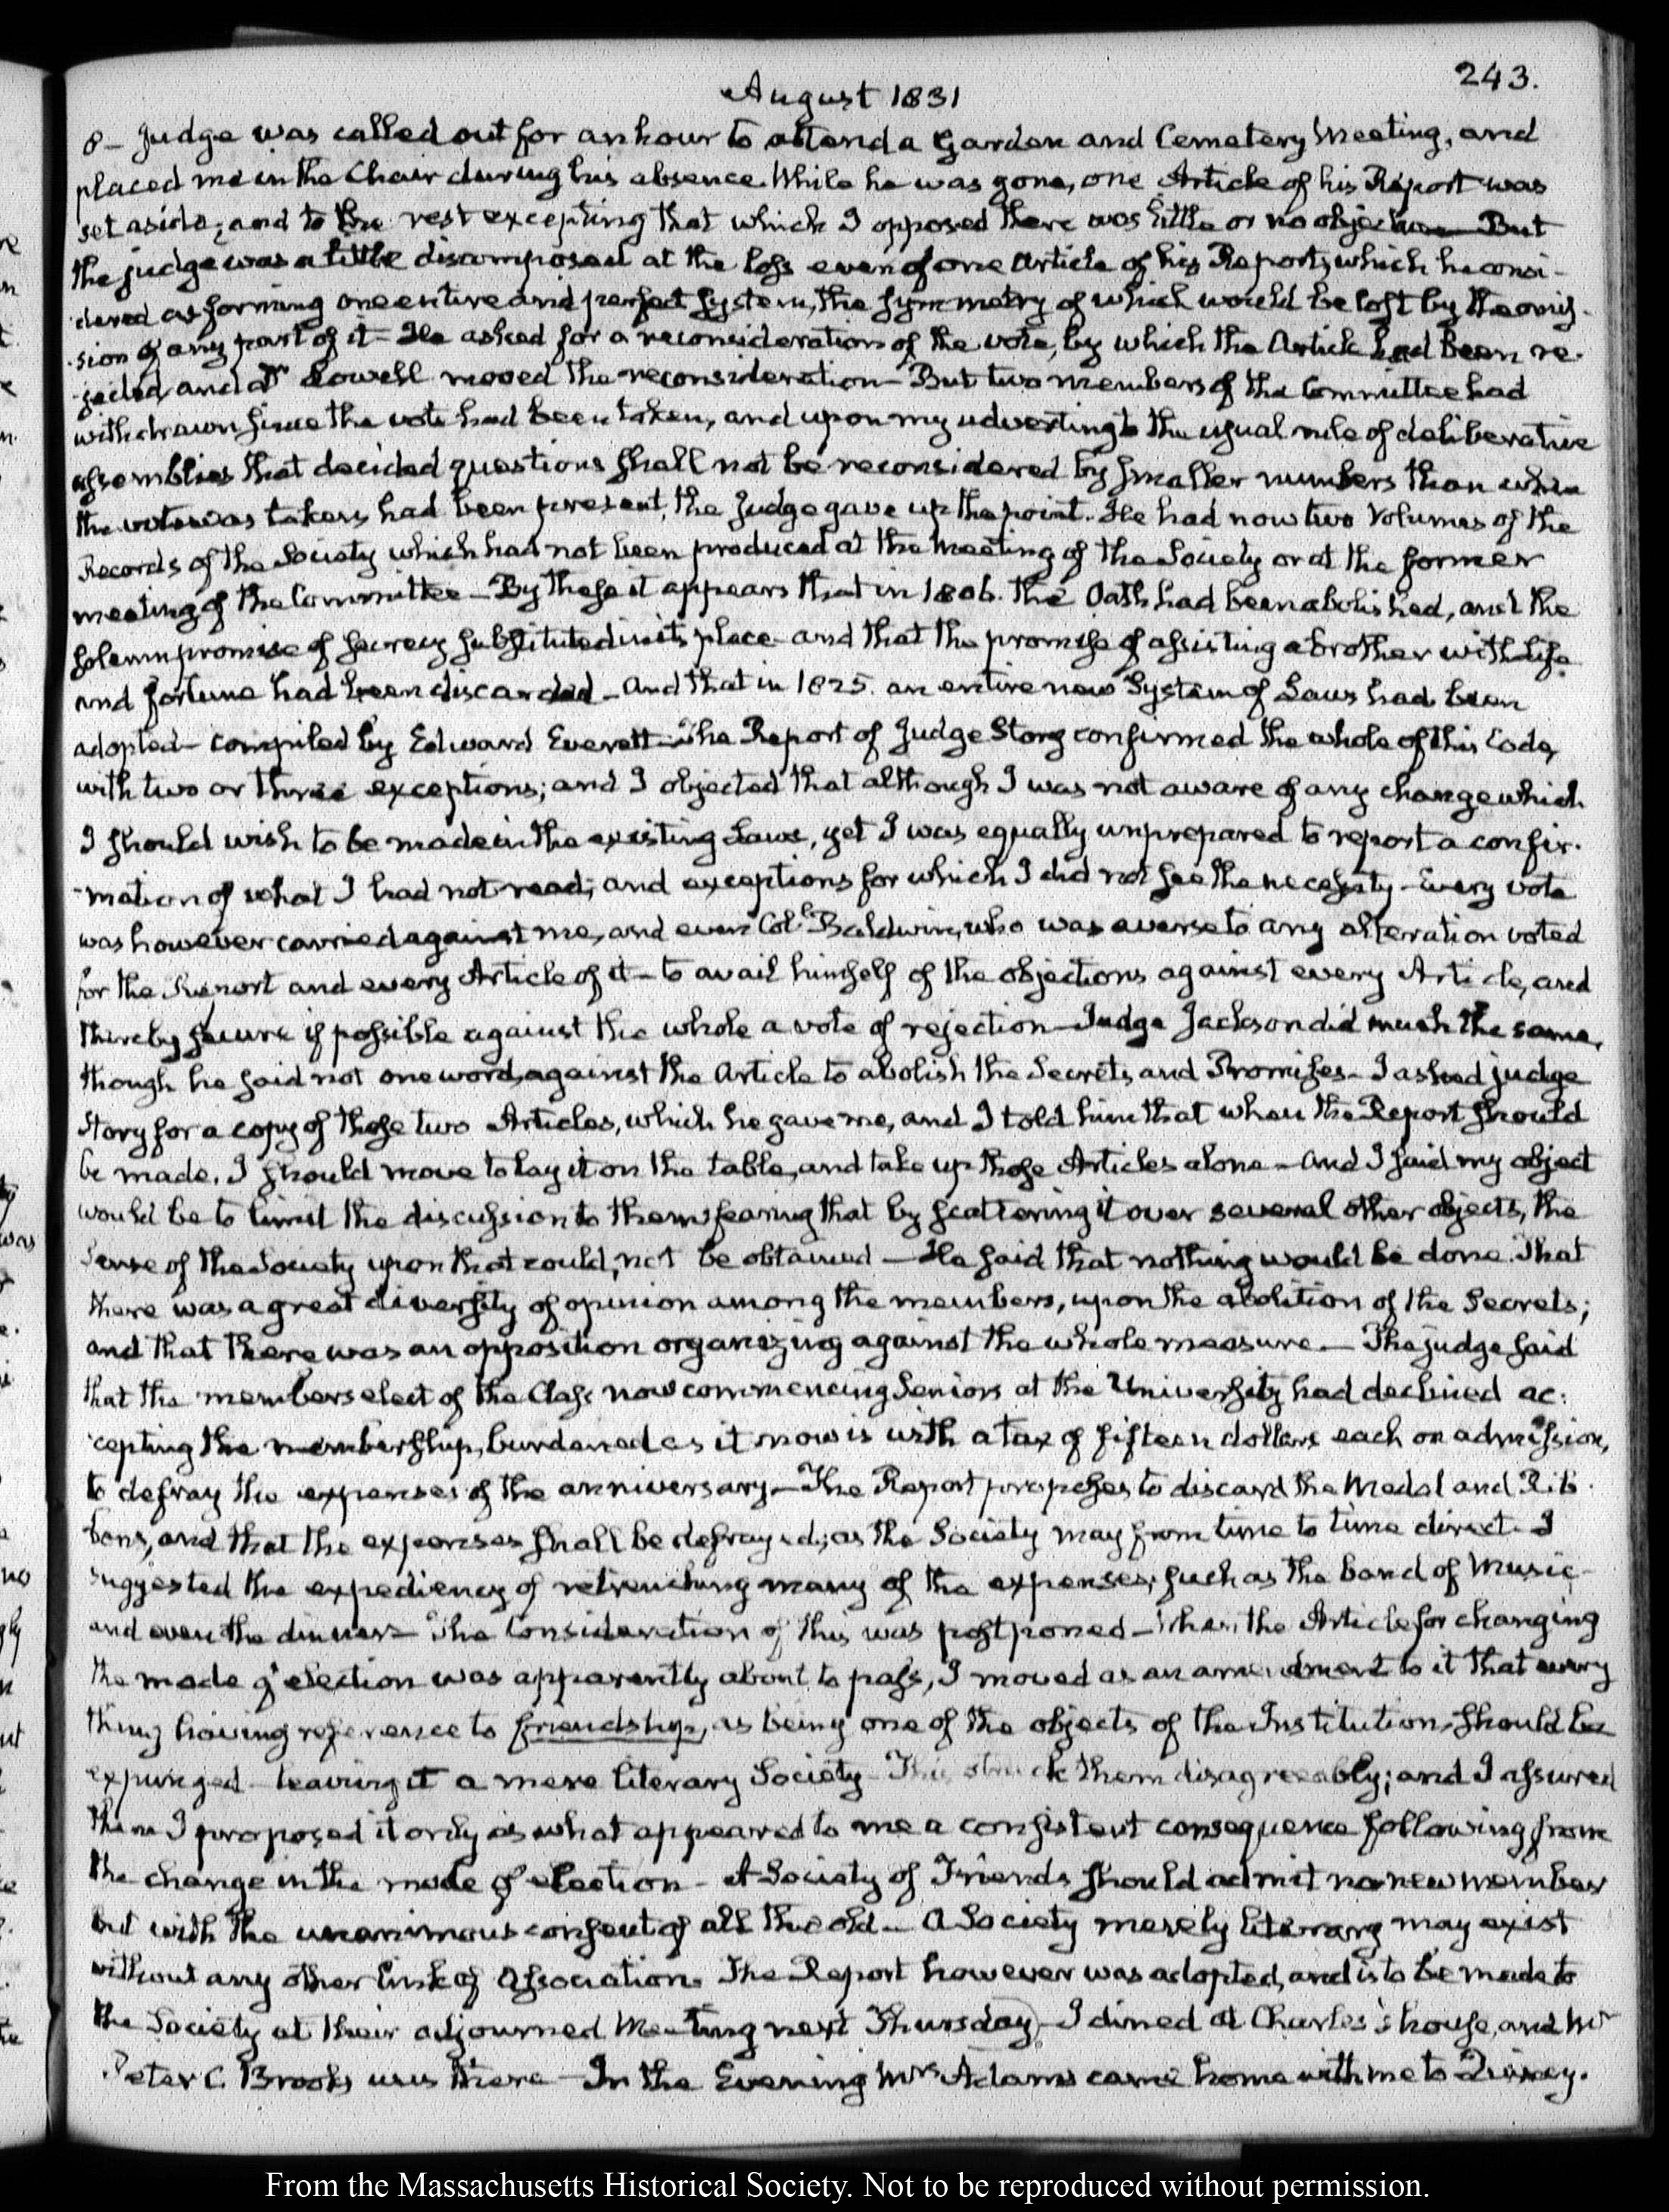 243.
August 1831
8 – Judge was called out for an hour to attend a Garden and Cemetery Meeting, and
placed me in the Chair during his absence. While he was gone, one Article of his Report was
set aside; and to the rest excepting that which I opposed there was little or no objection – But
the judge was a little discomposed at the loss even of one Article of his Report, which he consi-
dered as forming one entire and perfect system, the symmetry of which would be lost by the omis-
sion of any part of it – He asked for a reconsideration of the vote, by which the Article had been re-
jected, and Dr Lowell moved the reconsideration – But two members of the Committee had
withdrawn since the vote had been taken, and upon my adverting to the usual rule of deliberative
assemblies that decided questions shall not be reconsidered by smaller numbers than when
the vote was taken had been present, the Judge gave up the point. He had now two Volumes of the
Records of the Society which had not been produced at the meeting of the Society or at the former
meeting of the Committee – By these it appears that in 1806. the Oath had been abolished, and the
solemn promise of secrecy substituted in its place – and that the promise of assisting a brother with life
and fortune had been discarded – And that in 1825. an entire new System of Laws had been
adopted – compiled by Edward Everett – The Report of Judge Story confirmed the whole of this Code,
with two or three exceptions; and I objected that although I was not aware of any change which
I should wish to be made in the existing Laws, yet I was equally unprepared to report a confir-
mation of what I had not read; and exceptions for which I did not see the necessity – Every vote
was however carried against me, and even Coll Baldwin, who was averse to any alteration voted
for the Report and every Article of it – to avail himself of the objections against every Article, and
thereby secure if possible against the whole a vote of rejection – Judge Jackson did much the same,
though he said not one word, against the Article to abolish the Secrets and Promises – I asked judge
Story for a copy of those two Articles, which he gave me, and I told him that when the Report should
be made, I should move to lay it on the table, and take up those Articles alone – And I said my object
would be to limit the discussion to them, fearing that by scattering it over several other objects, the
Sense of the Society upon that could, not be obtained – He said that nothing would be done. That
there was a great diversity of opinion among the members, upon the abolition of the Secrets;
and that there was an opposition organizing against the whole measure – The judge said
that the members elect of the Class now commencing Seniors at the University had declined ac-
cepting the membership, burdened as it now is with a tax of fifteen dollars each on admission,
to defray the expenses of the anniversary – The Report proposes to discard the Medal and Rib-
bons, and that the expenses shall be defrayed; as the Society may from time to time direct – I
suggested the expediency of retrenching many of the expenses, such as the band of Music –
and even the dinner – The Consideration of this was postponed – When the Article for changing
the mode of election was apparently about to pass, I moved as an amendment to it that every
thing having reference to friendship, as being one of the objects of the Institution, should be
expunged – leaving it a mere literary Society – This struck them disagreeably; and I assured
them I proposed it only as what appeared to me a consistent consequence following from
the change in the mode of election – A Society of Friends should admit no new member
but with the unanimous consent of all the old – A Society merely literary may exist
without any other link of Association. The Report however was adopted, and is to be made to
the Society at their adjourned Meeting next Thursday – I dined at Charles's house, and Mr
Peter C. Brooks was there – In the Evening Mrs Adams came home with me to Quincy.
From the Massachusetts Historical Society. Not to be reproduced without permission.